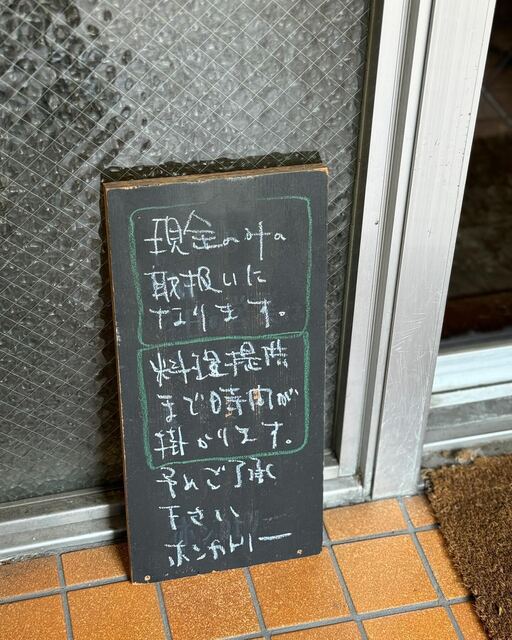 現金のみの
取扱いに
なります。
料理提供
まで時間が
掛かります。
予めご了承
下さい